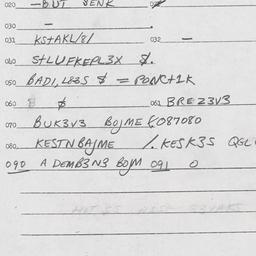 020 —BUT SENK 02
030
031 KSTAKL/8/ 032 —
040 STLUFKEPL3X $.
050 BADI,LEBS $ = PONCT1K
060 $ 061 BREZ3V3
070 BUK3V3 BOJME £087080
080 KESTNBAJME /. KESK3S QGL
090 A DEMB3N3 BOJM 091 0